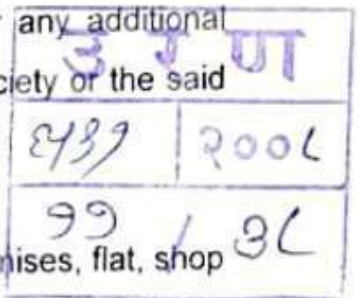 any additional
उ र ण
ciety or the said
२००८
११ / ३८
nises, flat, shop